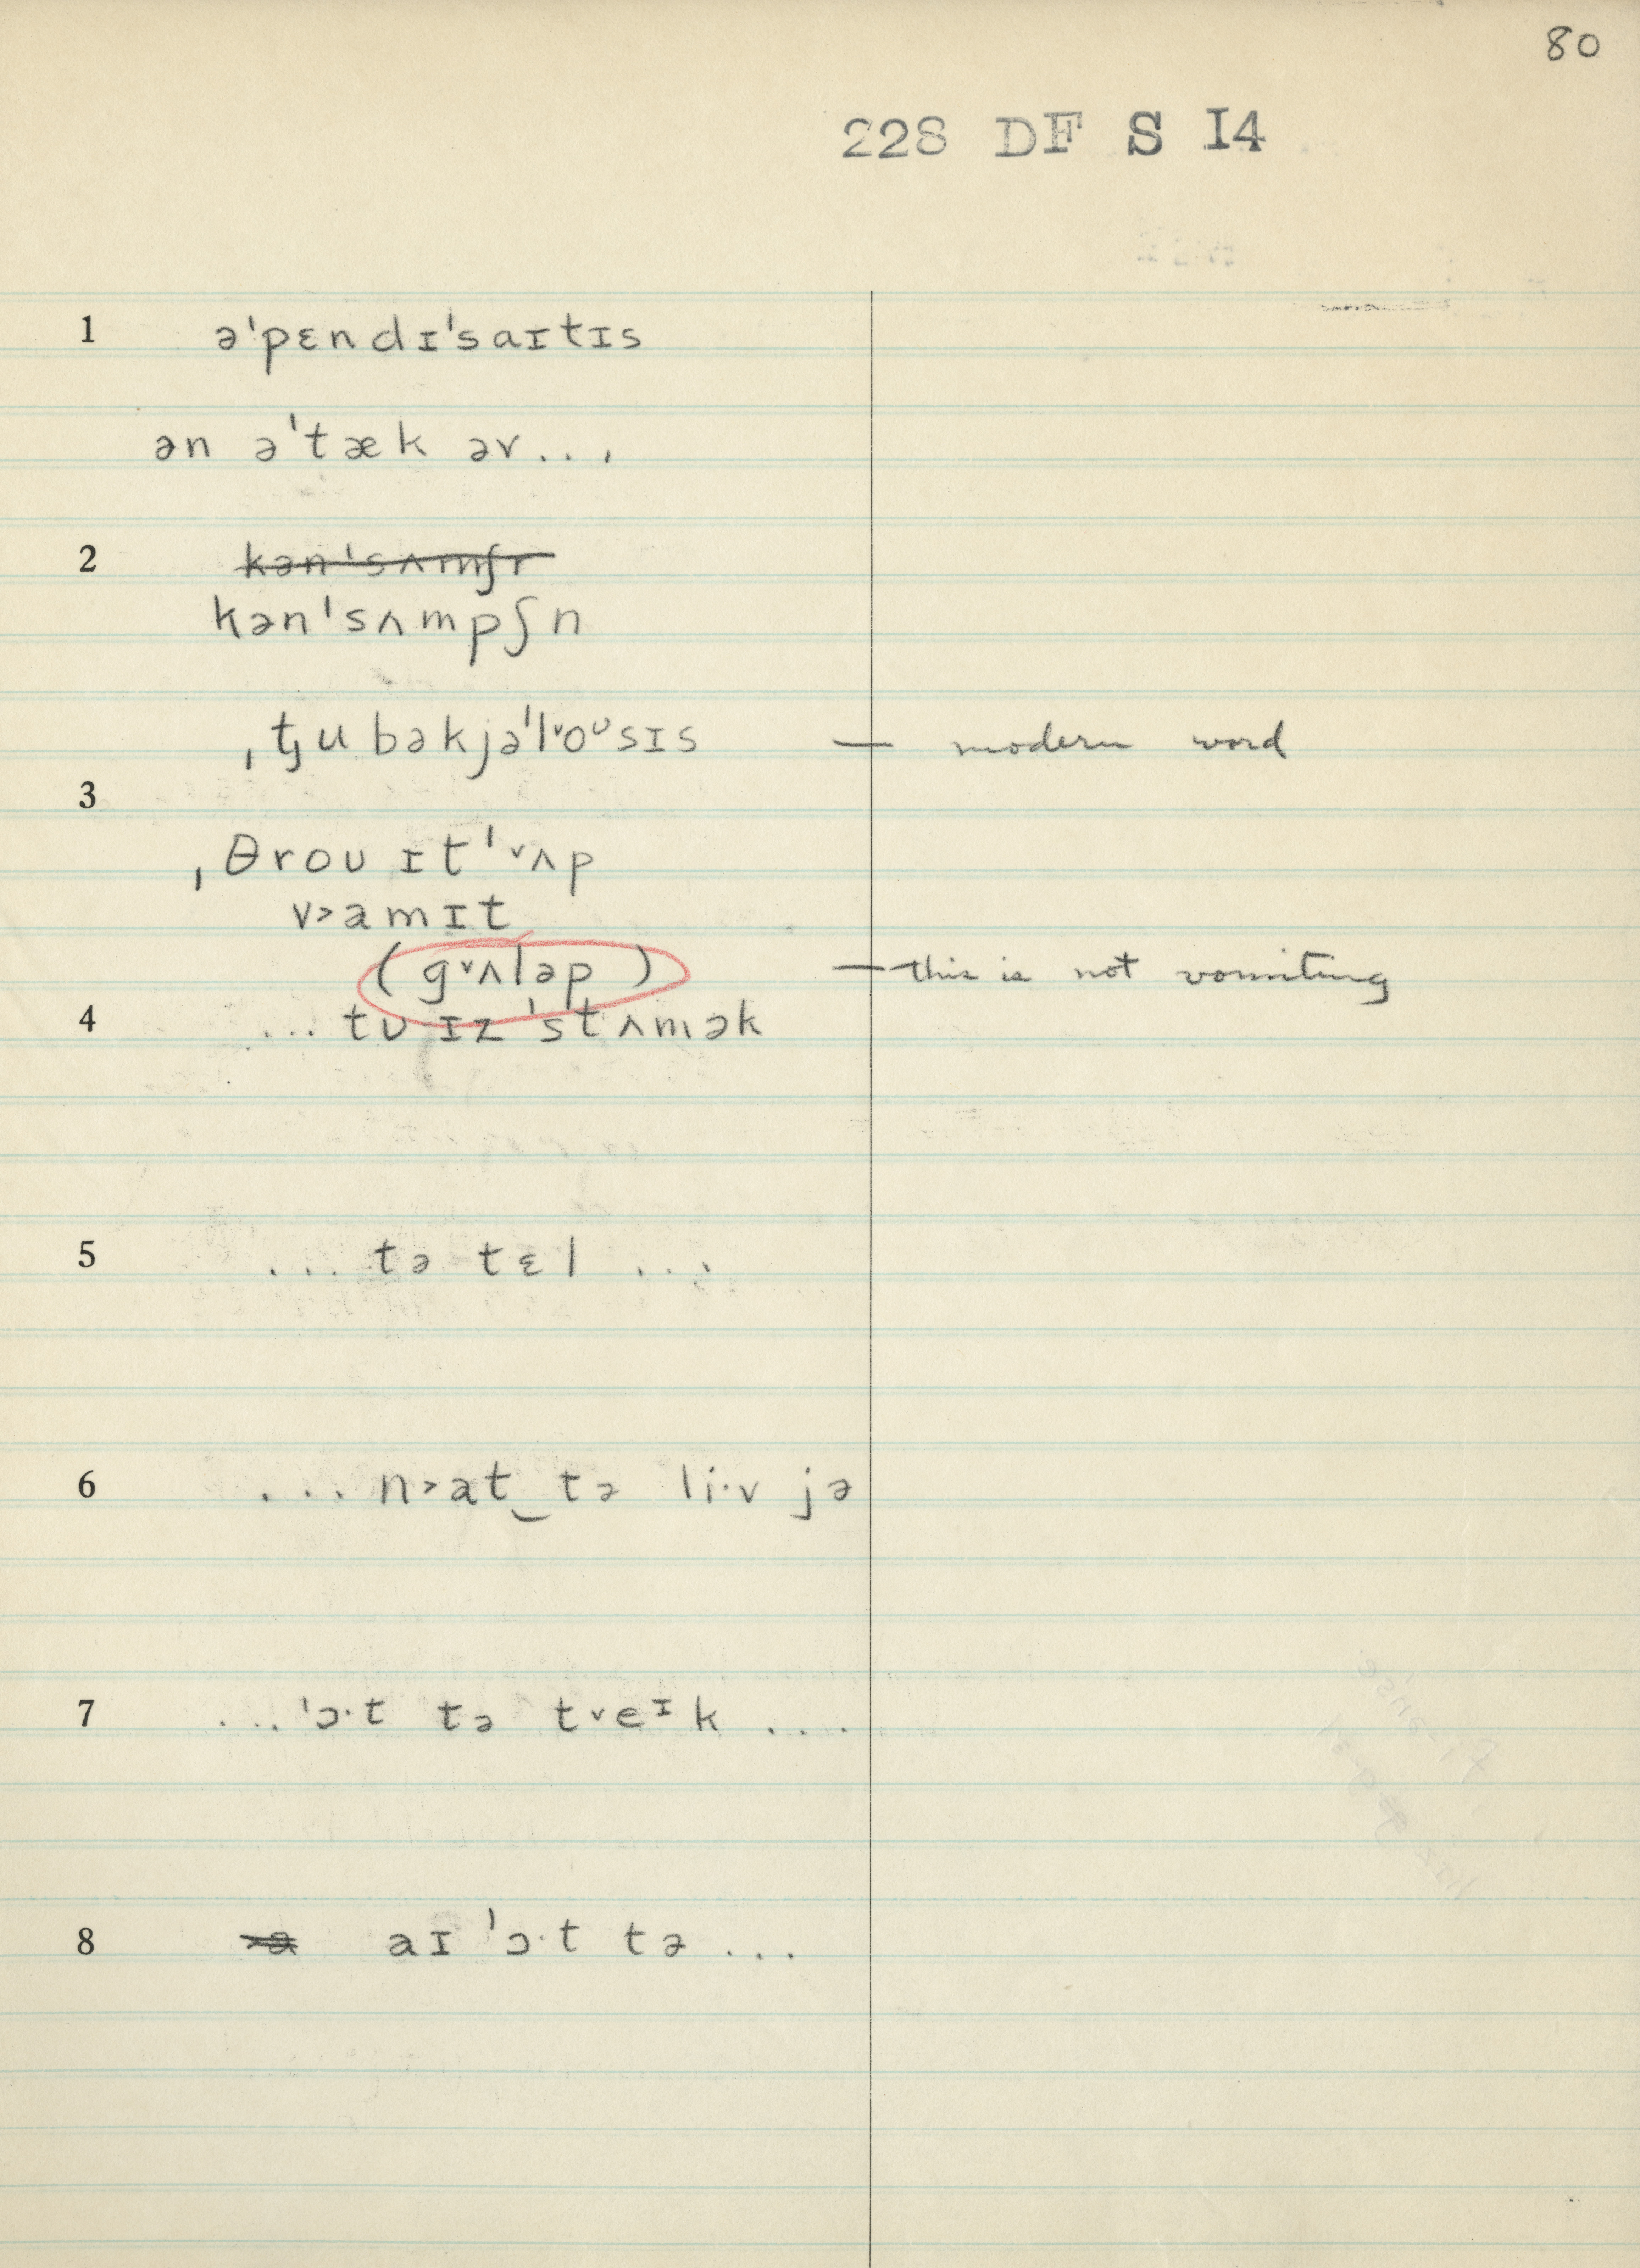 80
228 DF S I4
1 ə'pɛndɪ'saɪtɪs
ən ə'tæk əv...
2 kən'sʌmʃ
kən'sʌmpʃn
ˌtᶨubəkjə'l˅oᶸsɪs — modern word
3
ˌθroʊ ɪt'˅ʌp
v˃amɪt
(g˅ʌləp) — this is not vomiting
4 ...tʊ ɪz 'stʌmək
5 ...tə tɛl...
6 ...n˃at‿tə li·v jə
7 ...'ɔ·t tə t˅eᶦk ....
8 aɪ 'ɔ·t tə...